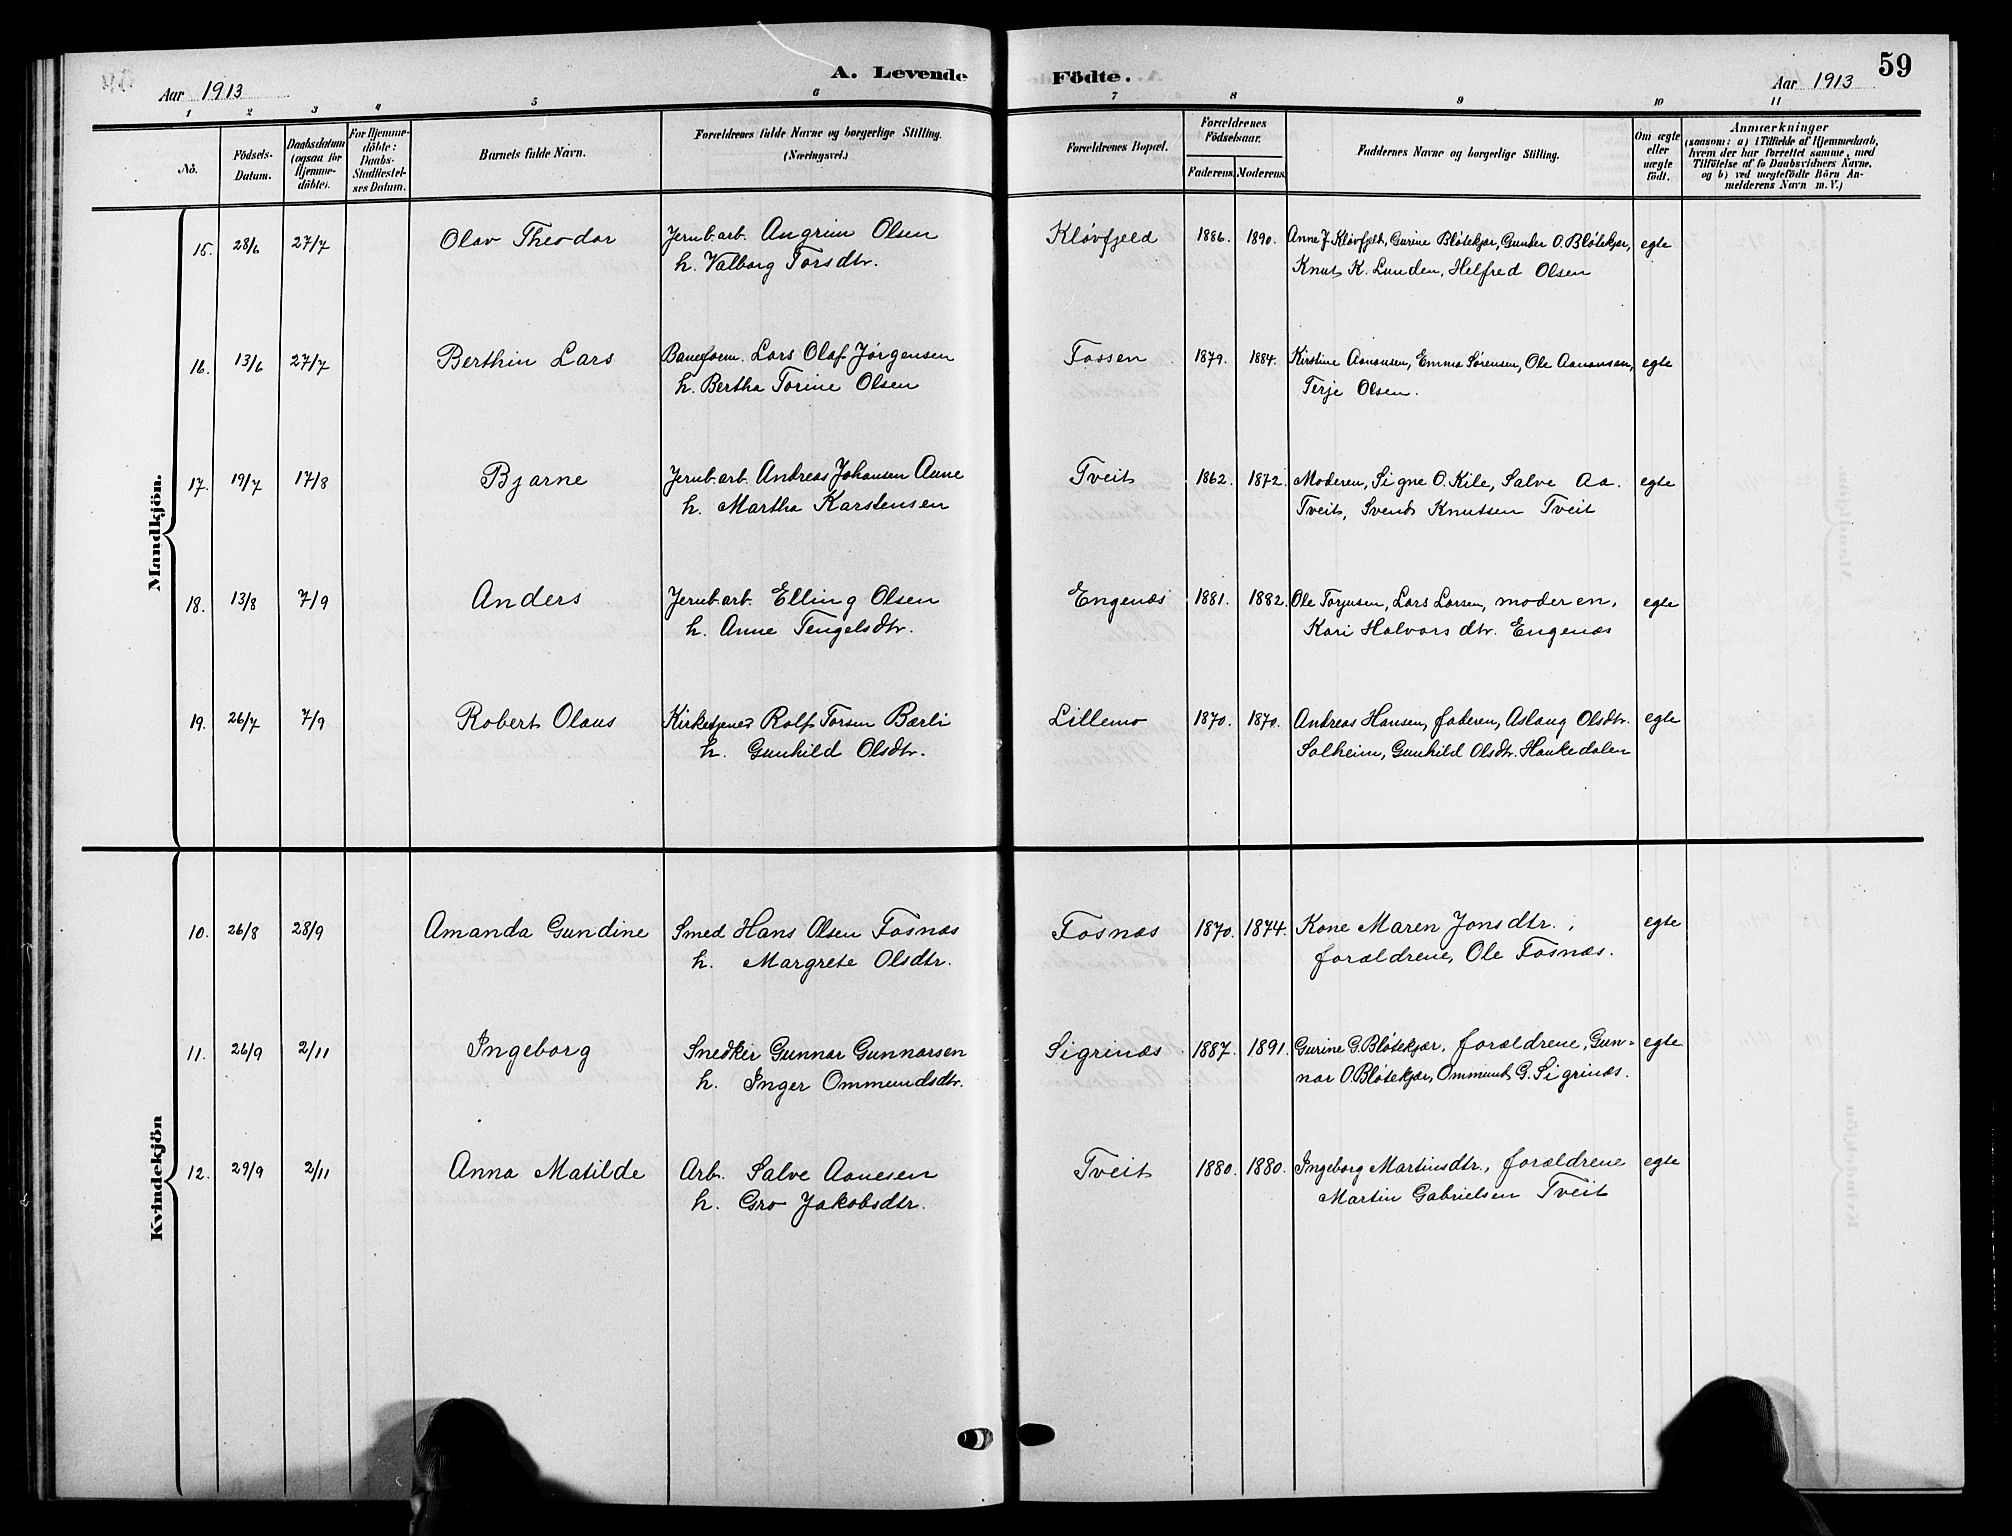 A. Levende Födte.
59
Aar 1913
Aar 1913
1 2 3 4 5 6 7 8 9 10 11
No.
Födsels-Datum.
Daabsdatum (ogsaa för Hjemmedöbte).
For Hjemmedöbte: Daabs-Stadfæstelses Datum.
Barnets fulde Navn.
Forældrenes fulde Navne og borgerlige Stilling. (Næringsvei.)
Forældrenes Bopæl.
Forældrenes Födselsaar.
Faderens. Moderens.
Faddernes Navne og borgerlige Stilling.
Om ægte eller uægte födt.
Anmærkninger
(saasom: a) i Tilfælde af Hjemmedaab,
hvem der har forrettet samme, med
Tilföielse af to Daabsvidners Navne,
og b) ved uægtefödte Börn An-
melderens Navn m. V.)
Mandkjön.
15. 28/6 27/7 Olav Theodor Jernb.arb. Angrim Olsen Kløvfjeld 1886. 1890. Anne J. Kløvfjeld, Gurine Bløtekjær, Gunder O. Bløtekjær, egte
h. Valborg Torsdtr. Knut K. Lunden, Helfred Olsen
16. 13/6 27/7 Berthin Lars Baneform. Lars Olaf Jørgensen Fossen 1879. 1884. Kirstine Aanonsen, Emma Sørensen, Ole Aanonsen, egte
h. Bertha Torine Olsen Terje Olsen.
17. 19/7 17/8 Bjarne Jernb.arb. Andreas Johansen Aune Tveit 1862. 1872. Moderen, Signe O. Kile, Salve Aa. egte
h. Martha Karstensen Tveit, Svend Knutsen Tveit
18. 13/8 7/9 Anders Jernb.arb. Elling Olsen Engenæs 1881. 1882. Ole Torjusen, Lars Larsen, moderen, egte
h. Anne Tengelsdtr. Kari Halvorsdtr. Engenæs
19. 26/7 7/9 Robert Olaus Kirketjener Rolf Torsen Bærli Lillemo 1870. 1870. Andreas Hansen, faderen, Aslaug Olsdtr. egte
h. Gunhild Olsdtr. Solheim, Gunhild Olsdtr. Haukedalen
Kvindekjön
10. 26/8 28/9 Amanda Gundine Smed Hans Olsen Fosnæs Fosnæs 1870. 1874. Kone Maren Jonsdtr., egte
h. Margrete Olsdtr. forældrene, Ole Fosnæs.
11. 26/9 2/11 Ingeborg Snedker Gunnar Gunnarsen Sigrinæs 1887. 1891. Gurine G. Bløtekjær, forældrene, Gun= egte
h. Inger Ommundsdtr. nar O. Bløtekjær, Ommund G. Sigrinæs.
12. 29/9 2/11 Anna Matilde Arb. Salve Aanesen Tveit 1880. 1880. Ingeborg Martinsdtr., forældrene egte
h. Gro Jakobsdtr. Martin Gabrielsen Tveit